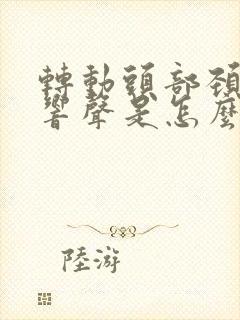 轉動頭部頚
響聲是怎麼
陸游